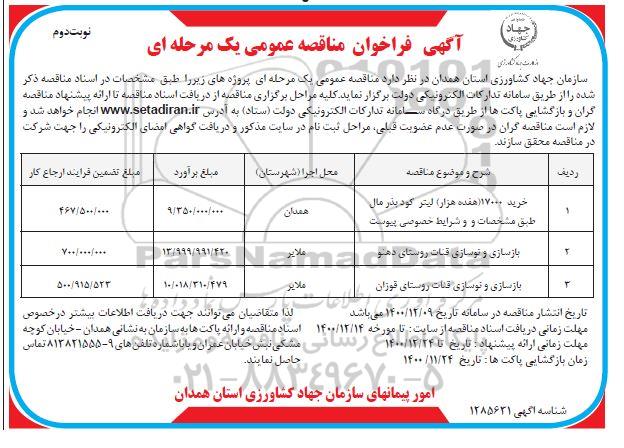 نوبت دوم
جهاد کشاورزی
آگهی فراخوان مناقصه عمومی یک مرحله ای
سازمان جهاد کشاورزی استان همدان در نظر دارد مناقصه عمومی یک مرحله ای پروژه های زیررا طبق مشخصات در اسناد مناقصه ذکر
شده را از طریق سامانه تدارکات الکترونیکی دولت برگزار نماید. کلیه مراحل برگزاری مناقصه از دریافت اسناد مناقصه تا ارائه پیشنهاد مناقصه
گران و بازگشایی پاکت ها از طریق درگاه سامانه تدارکات الکترونیکی دولت (ستاد) به آدرس www.setadiran.ir انجام خواهد شد و
لازم است مناقصه گران در صورت عدم عضویت قبلی، مراحل ثبت نام در سایت مذکور و دریافت گواهی امضای الکترونیکی را جهت شرکت
در مناقصه محقق سازند.
ردیف شرح و موضوع مناقصه محل اجرا (شهرستان) مبلغ برآورد مبلغ تضمین فرایند ارجاع کار
۱ خرید ۱۷۰۰۰(هفده هزار) لیتر کود بذر مال طبق مشخصات و و شرایط خصوصی پیوست همدان ۹/۳۵۰/۰۰۰/۰۰۰ ۴۶۷/۵۰۰/۰۰۰
۲ بازسازی و نوسازی قنات روستای دهنو ملایر ۱۳/۹۹۹/۹۹۱/۴۲۰ ۷۰۰/۰۰۰/۰۰۰
۳ بازسازی و نوسازی قنات روستای قوزان ملایر ۱۰/۰۱۸/۳۱۰/۴۷۹ ۵۰۰/۹۱۵/۵۲۳
تاریخ انتشار مناقصه در سامانه تاریخ ۱۴۰۰/۱۲/۰۹ می‌باشد
مهلت زمانی دریافت اسناد مناقصه از سایت : تا مورخه ۱۴۰۰/۱۲/۱۴
مهلت زمانی ارائه پیشنهاد : تاریخ تا ۱۴۰۰/۱۲/۲۴
زمان بازگشایی پاکت ها : تاریخ ۱۴۰۰/۱۱/۲۴
لذا متقاضیان می توانند جهت دریافت اطلاعات بیشتر در خصوص
اسناد مناقصه و ارائه پاکت ها به سازمان به نشانی همدان -خیابان کوچه
مشکی نبش خیابان عمران و یا با شماره تلفن های ۹-۸۱۳۸۲۱۵۵۵ تماس
حاصل نمایند.
امور پیمانهای سازمان جهاد کشاورزی استان همدان
شناسه اگهی ۱۲۸۵۶۳۱
ParsNamadData
۰۲۱-۸۸۳۴۹۶۷۰-۵